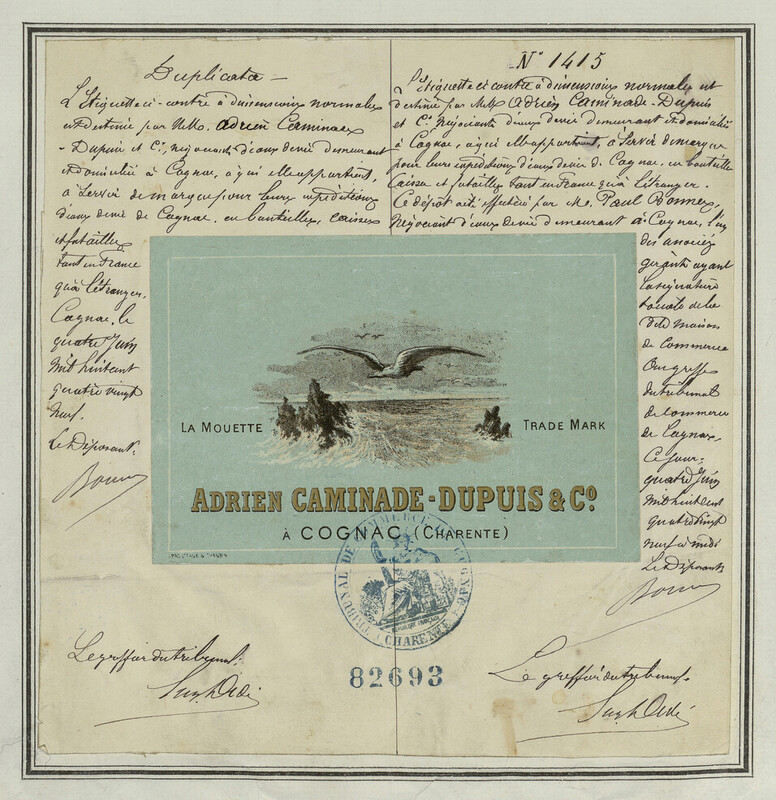 Duplicata —
L'étiquette ci-contre à dimensions normales
est destinée par MMrs. Adrien Caminade
-Dupuis et Cie, négociants d'eaux de vie demeurant
et domiciliés à Cognac, à qui elle appartient,
à servir de marque pour leurs expéditions
d'eaux de vie de Cognac, en bouteilles, caisses
et futailles
tant en France
qu'à l'étranger.
Cognac, le
quatre Juin
mil huit cent
quatre vingt
neuf.
Le Déposant.
N° 1415
L'étiquette ci contre à dimensions normales est
destinée par MMrs Adrien Caminade-Dupuis
et Cie Négociants d'eaux de vie demeurant et domiciliés
à Cognac, à qui elle appartient, à servir de marque
pour leurs expéditions d'eaux de vie de Cognac, en bouteilles
caisses et futailles tant en France qu'à l'étranger.
Ce dépôt a été effectué par Mr. Paul
Négociant d'eaux de vie demeurant à Cognac, l'un
des associés
gérants ayant
la signature
sociale de la
dite maison
de commerce
au greffe
du tribunal
de commerce
de Cognac,
ce jour:
quatre Juin
mil huit cent
quatre vingt
neuf à midi
Le Déposant
LA MOUETTE
TRADE MARK
ADRIEN CAMINADE-DUPUIS & Co.
À COGNAC (CHARENTE)
TRIBUNAL DE COMMERCE DE COGNAC
RÉPUBLIQUE FRANÇAISE
(CHARENTE)
82693
Le greffier du tribunal:
Le greffier du tribunal.